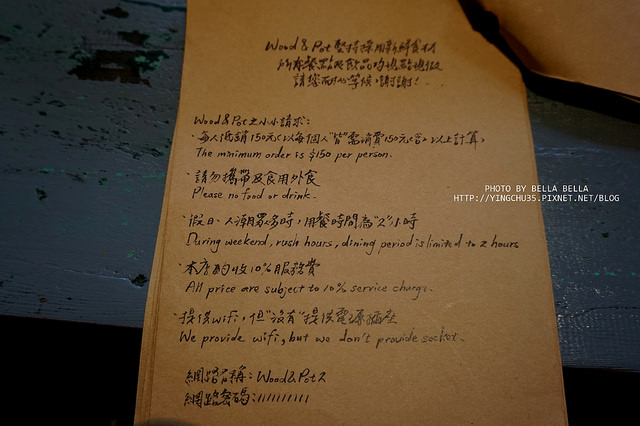 Wood & Pot 堅持採用新鮮食材
所有餐點及飲品均現點現做
請您耐心等候,謝謝!
Wood & Pot 之小小請求:
·每人低銷150元(以每個人"皆"需消費150元(含)以上計算)
The minimum order is $150 per person.
·請勿攜帶及食用外食
Please no food or drink.
·假日、人潮眾多時,用餐時間為"2"小時
During weekend, rush hours, dining period is limited to 2 hours
·本店酌收10%服務費
All price are subject to 10% service charge.
·提供wifi,但"沒有"提供電源插座
We provide wifi, but we don't provide socket.
網路名稱:Wood&Pot
網路密碼:1111111111
PHOTO BY BELLA BELLA
HTTP://YINGCHU35.PIXNET.NET/BLOG